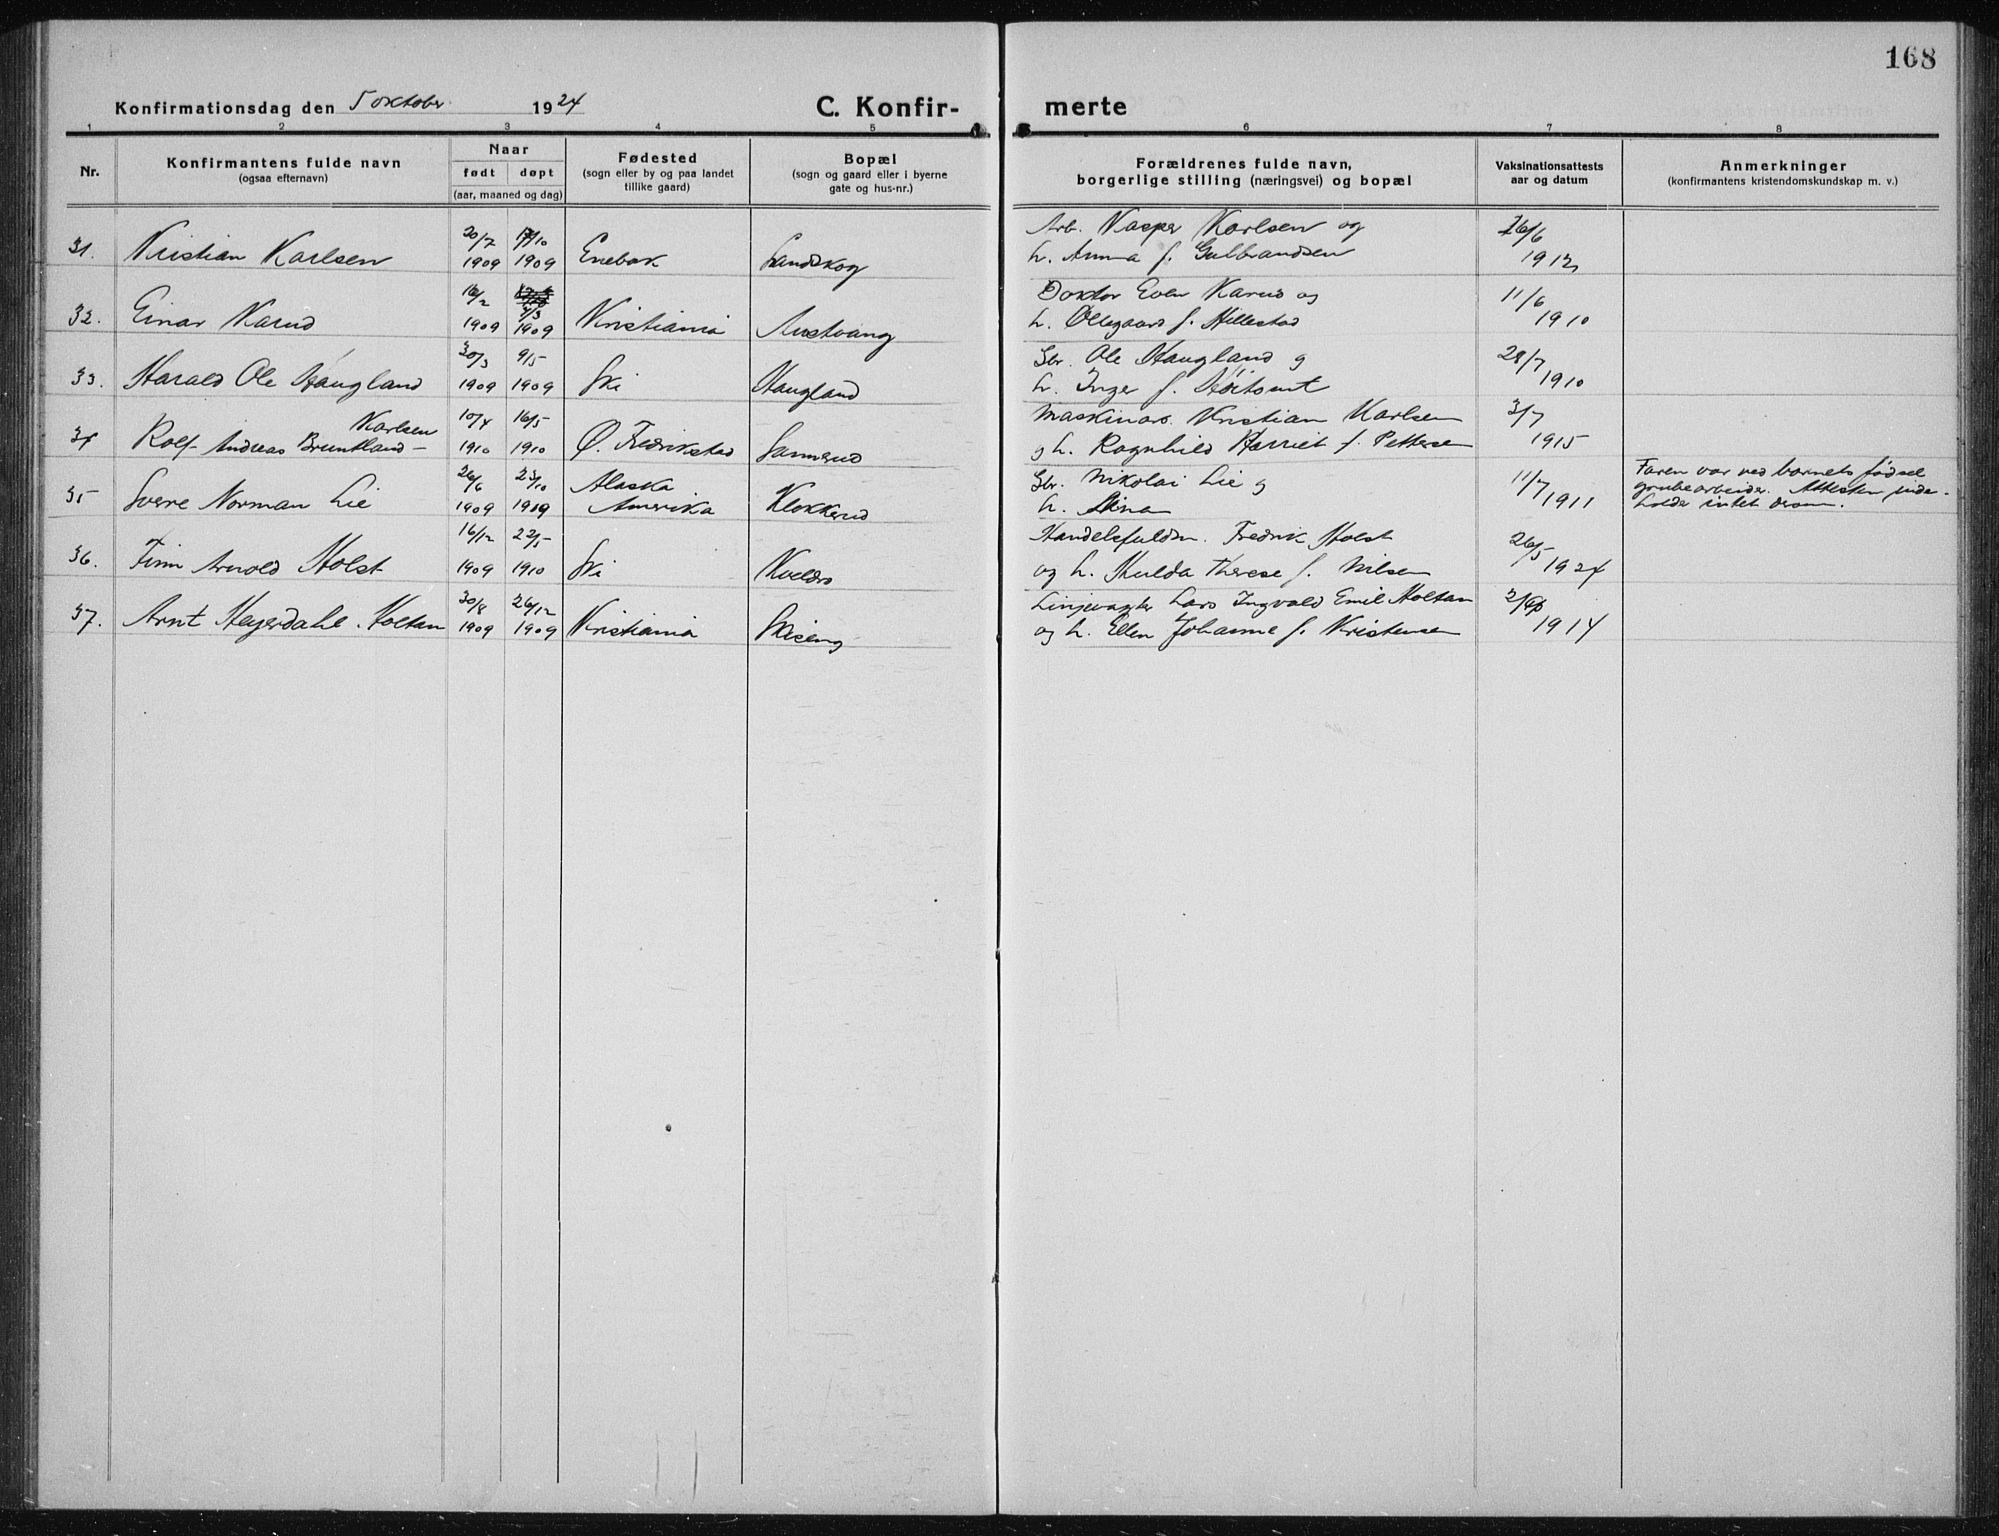 168
Konfirmationsdag den 5 oktober 1924
C. Konfir-
merte
1 2 3 4 5 6 7 8
Nr.
Konfirmantens fulde navn
(ogsaa efternavn)
Naar
født døpt
(aar, maaned og dag)
Fødested
(sogn eller by og paa landet
tillike gaard)
Bopæl
(sogn og gaard eller i byerne
gate og hus-nr.)
Forældrenes fulde navn,
borgerlige stilling (næringsvei) og bopæl
Vaksinationsattests
aar og datum
Anmerkninger
(konfirmantens kristendomskundskap m. v.)
20/7 /10 Arb. Kasper Karlsen og 26/6
31. Kristian Karlsen 1909 1909 Enebak Landskog h. Anna f. Gulbrandsen 1912
16/2 7/3 Doktor Even Karud og 11/6
32. Einar Karud 1909 1909 Kristiania Austvang h. Ollegaard f. Hillestad 1910
30/3 9/5 Gbr. Ole Haugland og 28/7
33. Harald Ole Haugland 1909 1909 Ski Haugland h. Inger f. 1910
Karlsen 10/4 16/5 Maskinarb. Kristian Karlsen 3/7
34 Rolf Andreas Bruntland- 1910 1910 Ø. Fredrikstad Sannerud og h. Ragnhild Harriet f. Pettersen 1915
26/6 23/10 Alaska Gbr. Nikolai Lie og 11/7 Faren var ved barnets fødsel
35 Sverre Norman Lie 1909 1909 Amerika Klokkerud h. 1911 grubearbeider. Attesten inde-
holder intet derom.
16/12 22/5 Handelsfuldm. Fredrik Holst 26/5
36. Finn Arnold Holst 1909 1910 Ski Kveldro og h. Hulda Therese f. Nilsen 1924
30/8 26/12 Linjevagter Lars Ingvald Emil Holtan
37. Arnt Heyerdahl Holtan 1909 1909 Kristiania Skieng og h. Ellen Johanne f. Kristensen 1914